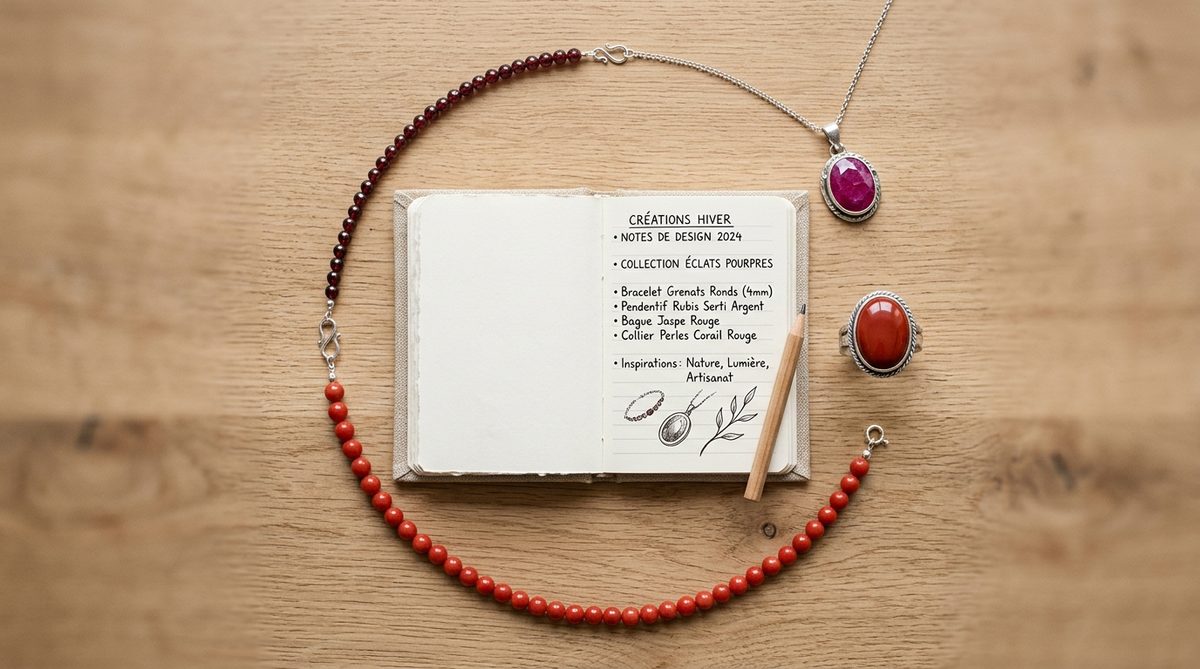 CRÉATIONS HIVER
• NOTES DE DESIGN 2024
• COLLECTION ÉCLATS POURPRES
• Bracelet Grenats Ronds (4mm)
• Pendentif Rubis Serti Argent
• Bague Jaspe Rouge
• Collier Perles Corail Rouge
• Inspirations: Nature, Lumière,
Artisanat